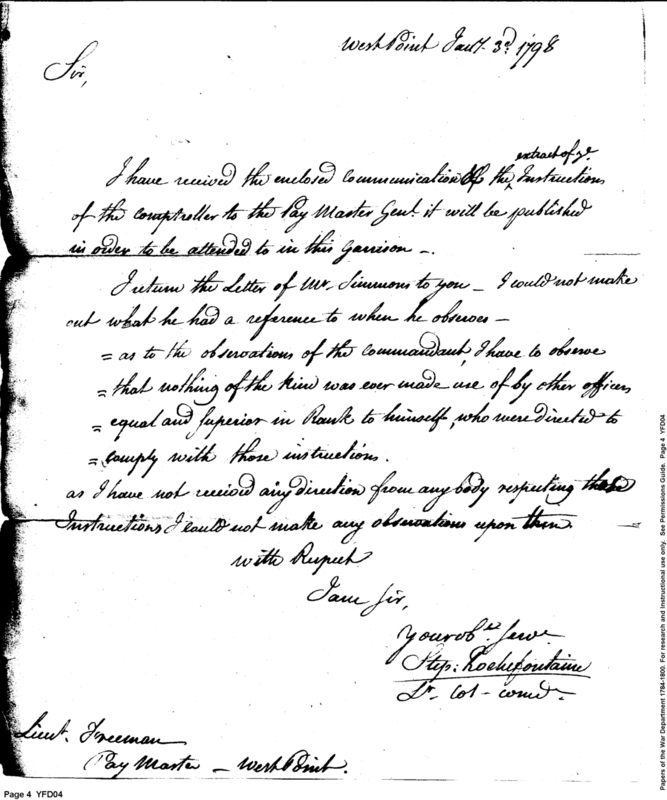 West Point Jany. 3d. 1798
Sir,
extract of ye.
I have received the enclosed communication Of the Instructions
of the comptroller to the Pay Master Genl. it will be published
in order to be attended to in this Garrison —.
I return the Letter of Mr. Simmons to you — I could not make
out what he had a reference to when he observes —
= as to the observations of the commandant, I have to observe
= that nothing of the kind was ever made use of by other officers
= equal and superior in Rank to himself, who were directed to
= comply with those instructions.
as I have not received any direction from any body respecting these
Instructions I could not make any observations upon them.
with Respect
I am Sir,
Your obt. Serve.
Step: Rochefontaine
Lt. Col — comdt.
Lieut. Freeman
Pay Master — West Point.
Page 4 YFD04
Papers of the War Department 1784-1800. For research and instructional use only. See Permissions Guide. Page 4 YFD04